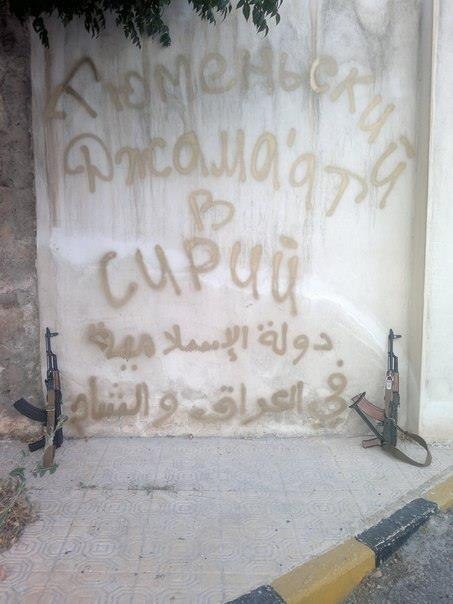 Тюменьский
Джама'ат
в
СИРИЙ
دولة الإسلامية
في العراق والشام